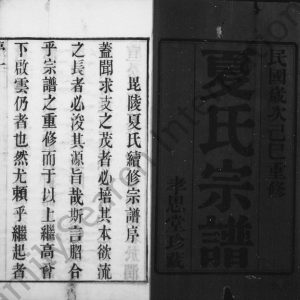 民國歲次己巳重修
夏氏宗譜
孝思堂珍藏
毘陵夏氏續修宗譜序
蓋聞求支之茂者必培其本欲流
之長者必浚其源旨哉斯言脗合
乎宗譜之重修而于以上繼高曾
下啟雲仍者也然尤賴乎繼起者
序一